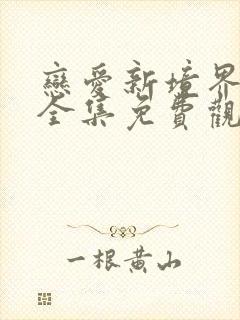 戀愛新境界
全集免費觀
一根黃山